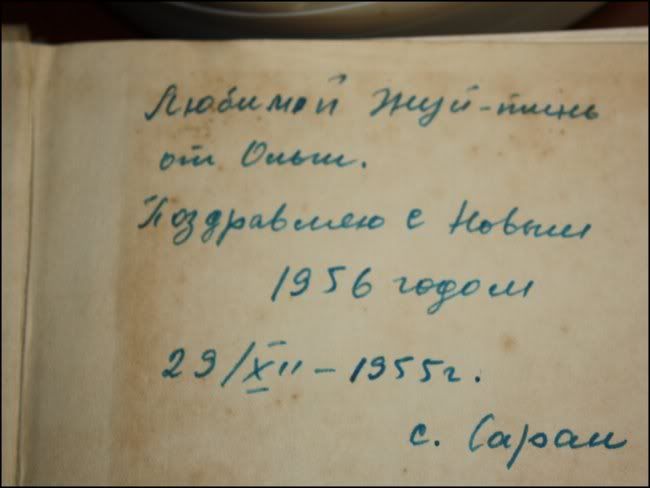 Любимой Жуй-тинь
от Ольги.
Поздравляю с Новым
1956 годом
29/XII – 1955г.
с. Саран